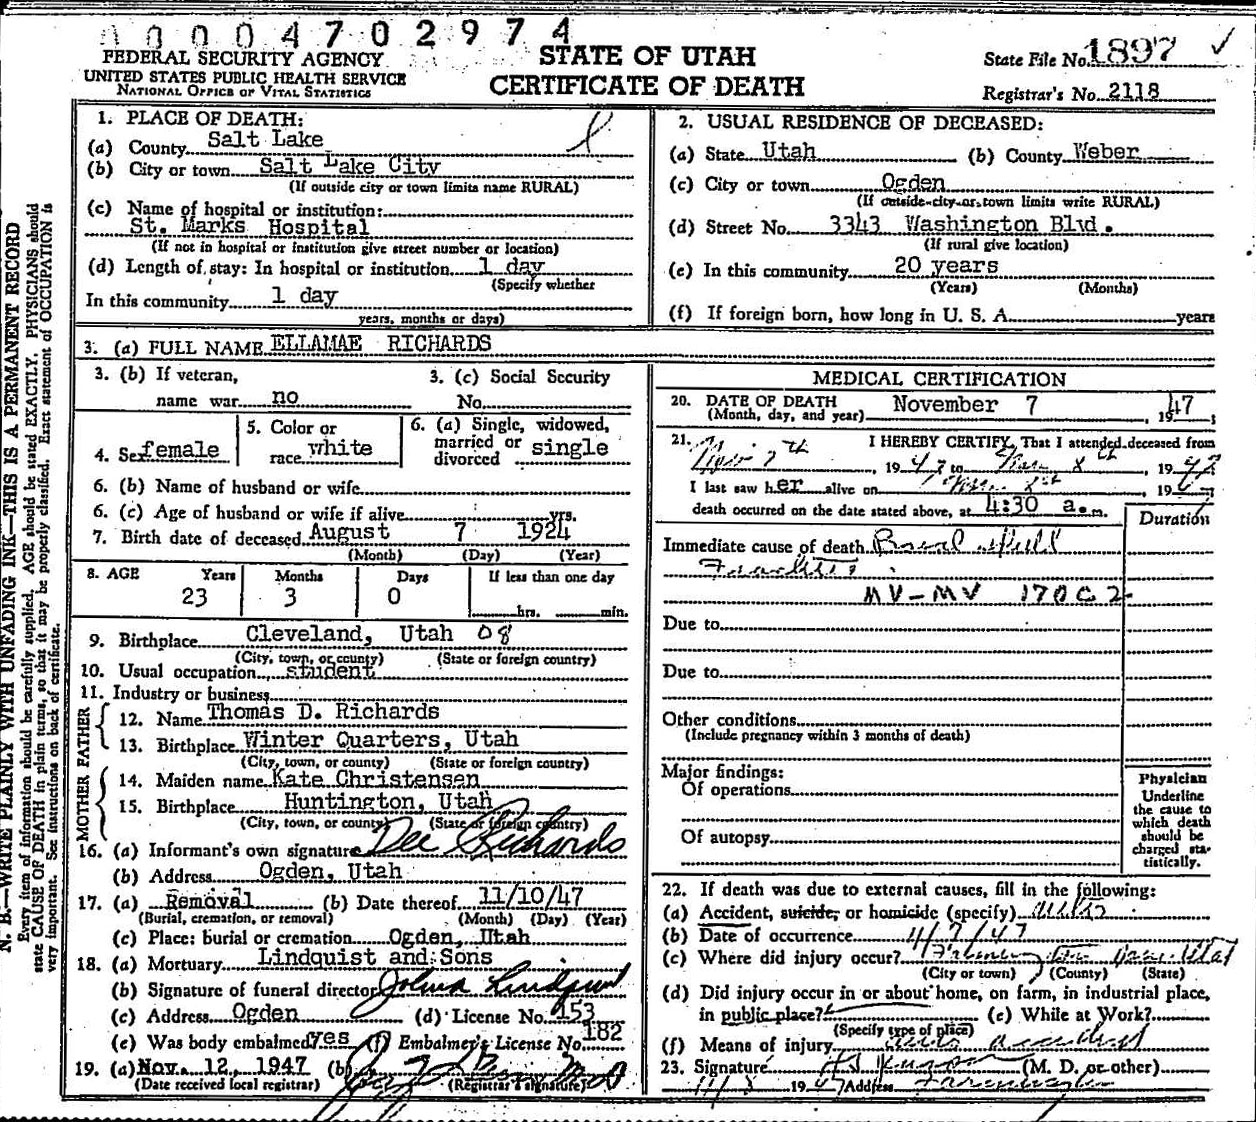 00004702974
FEDERAL SECURITY AGENCY
UNITED STATES PUBLIC HEALTH SERVICE
NATIONAL OFFICE OF VITAL STATISTICS
STATE OF UTAH
CERTIFICATE OF DEATH
State File No. 1897 ✓
Registrar's No. 2118
N. B.—WRITE PLAINLY WITH UNFADING INK—THIS IS A PERMANENT RECORD
Every item of information should be carefully supplied. AGE should be stated EXACTLY. PHYSICIANS should
state CAUSE OF DEATH in plain terms, so that it may be properly classified. Exact statement of OCCUPATION is
very important. See instructions on back of certificate.
1. PLACE OF DEATH:
(a) County Salt Lake
(b) City or town Salt Lake City
(If outside city or town limits name RURAL)
(c) Name of hospital or institution:
St. Marks Hospital
(If not in hospital or institution give street number or location)
(d) Length of stay: In hospital or institution 1 day
(Specify whether
In this community 1 day
years, months or days)
2. USUAL RESIDENCE OF DECEASED:
(a) State Utah (b) County Weber
(c) City or town Ogden
(If outside city or town limits write RURAL)
(d) Street No. 3343 Washington Blvd.
(If rural give location)
(e) In this community 20 years
(Years) (Months)
(f) If foreign born, how long in U. S. A. years
3. (a) FULL NAME ELLAMAE RICHARDS
3. (b) If veteran,
name war no
3. (c) Social Security
No.
4. Sex female
5. Color or
race white
6. (a) Single, widowed,
married or
divorced single
6. (b) Name of husband or wife
6. (c) Age of husband or wife if alive yrs.
7. Birth date of deceased August 7 1924
(Month) (Day) (Year)
8. AGE Years Months Days If less than one day
23 3 0 hrs. min.
9. Birthplace Cleveland, Utah 08
(City, town, or county) (State or foreign country)
10. Usual occupation student
11. Industry or business
FATHER
12. Name Thomas D. Richards
13. Birthplace Winter Quarters, Utah
(City, town, or county) (State or foreign country)
MOTHER
14. Maiden name Kate Christensen
15. Birthplace Huntington, Utah
(City, town, or county) (State or foreign country)
16. (a) Informant's own signature Dee Richards
(b) Address Ogden, Utah
17. (a) Removal (b) Date thereof 11/10/47
(Burial, cremation, or removal) (Month) (Day) (Year)
(c) Place: burial or cremation Ogden, Utah
18. (a) Mortuary Lindquist and Sons
(b) Signature of funeral director
(c) Address Ogden (d) License No. 153
(e) Was body embalmed? yes (f) Embalmer's License No. 182
19. (a) Nov. 12, 1947 (b)
(Date received local registrar) (Registrar's signature)
MEDICAL CERTIFICATION
20. DATE OF DEATH
(Month, day, and year) November 7 1947
21. I HEREBY CERTIFY, That I attended deceased from
Nov 7th, 1947 to Nov 8th, 1947
I last saw her alive on 19
death occurred on the date stated above, at 4:30 a.m.
Duration
Immediate cause of death Basal skull
Fracture
MV-MV 170C2
Due to
Due to
Other conditions
(Include pregnancy within 3 months of death)
Major findings:
Of operations
Of autopsy
Physician
Underline
the cause to
which death
should be
charged sta-
tistically.
22. If death was due to external causes, fill in the following:
(a) Accident, suicide, or homicide (specify)
(b) Date of occurrence 11/7/47
(c) Where did injury occur? Utah
(City or town) (County) (State)
(d) Did injury occur in or about home, on farm, in industrial place,
in public place? (e) While at Work?
(Specify type of place)
(f) Means of injury Auto accident
23. Signature (M. D. or other)
11/8 1947 Address Farmington